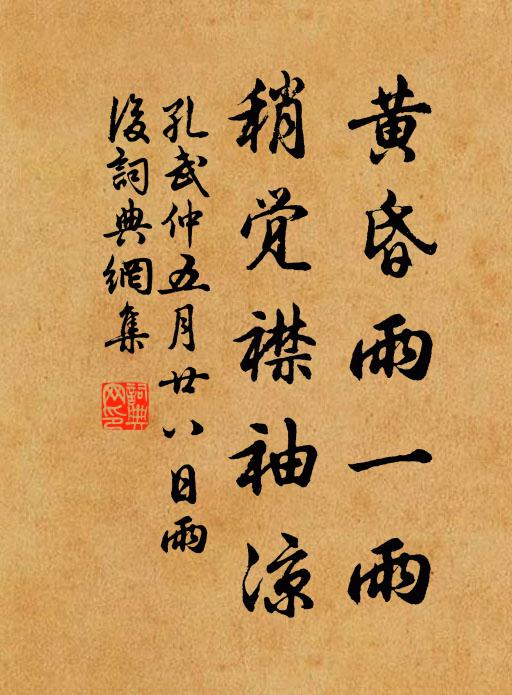 黄昏雨一雨
稍觉襟袖凉
孔武仲五月廿八日雨
後詞典網集
詞典网印